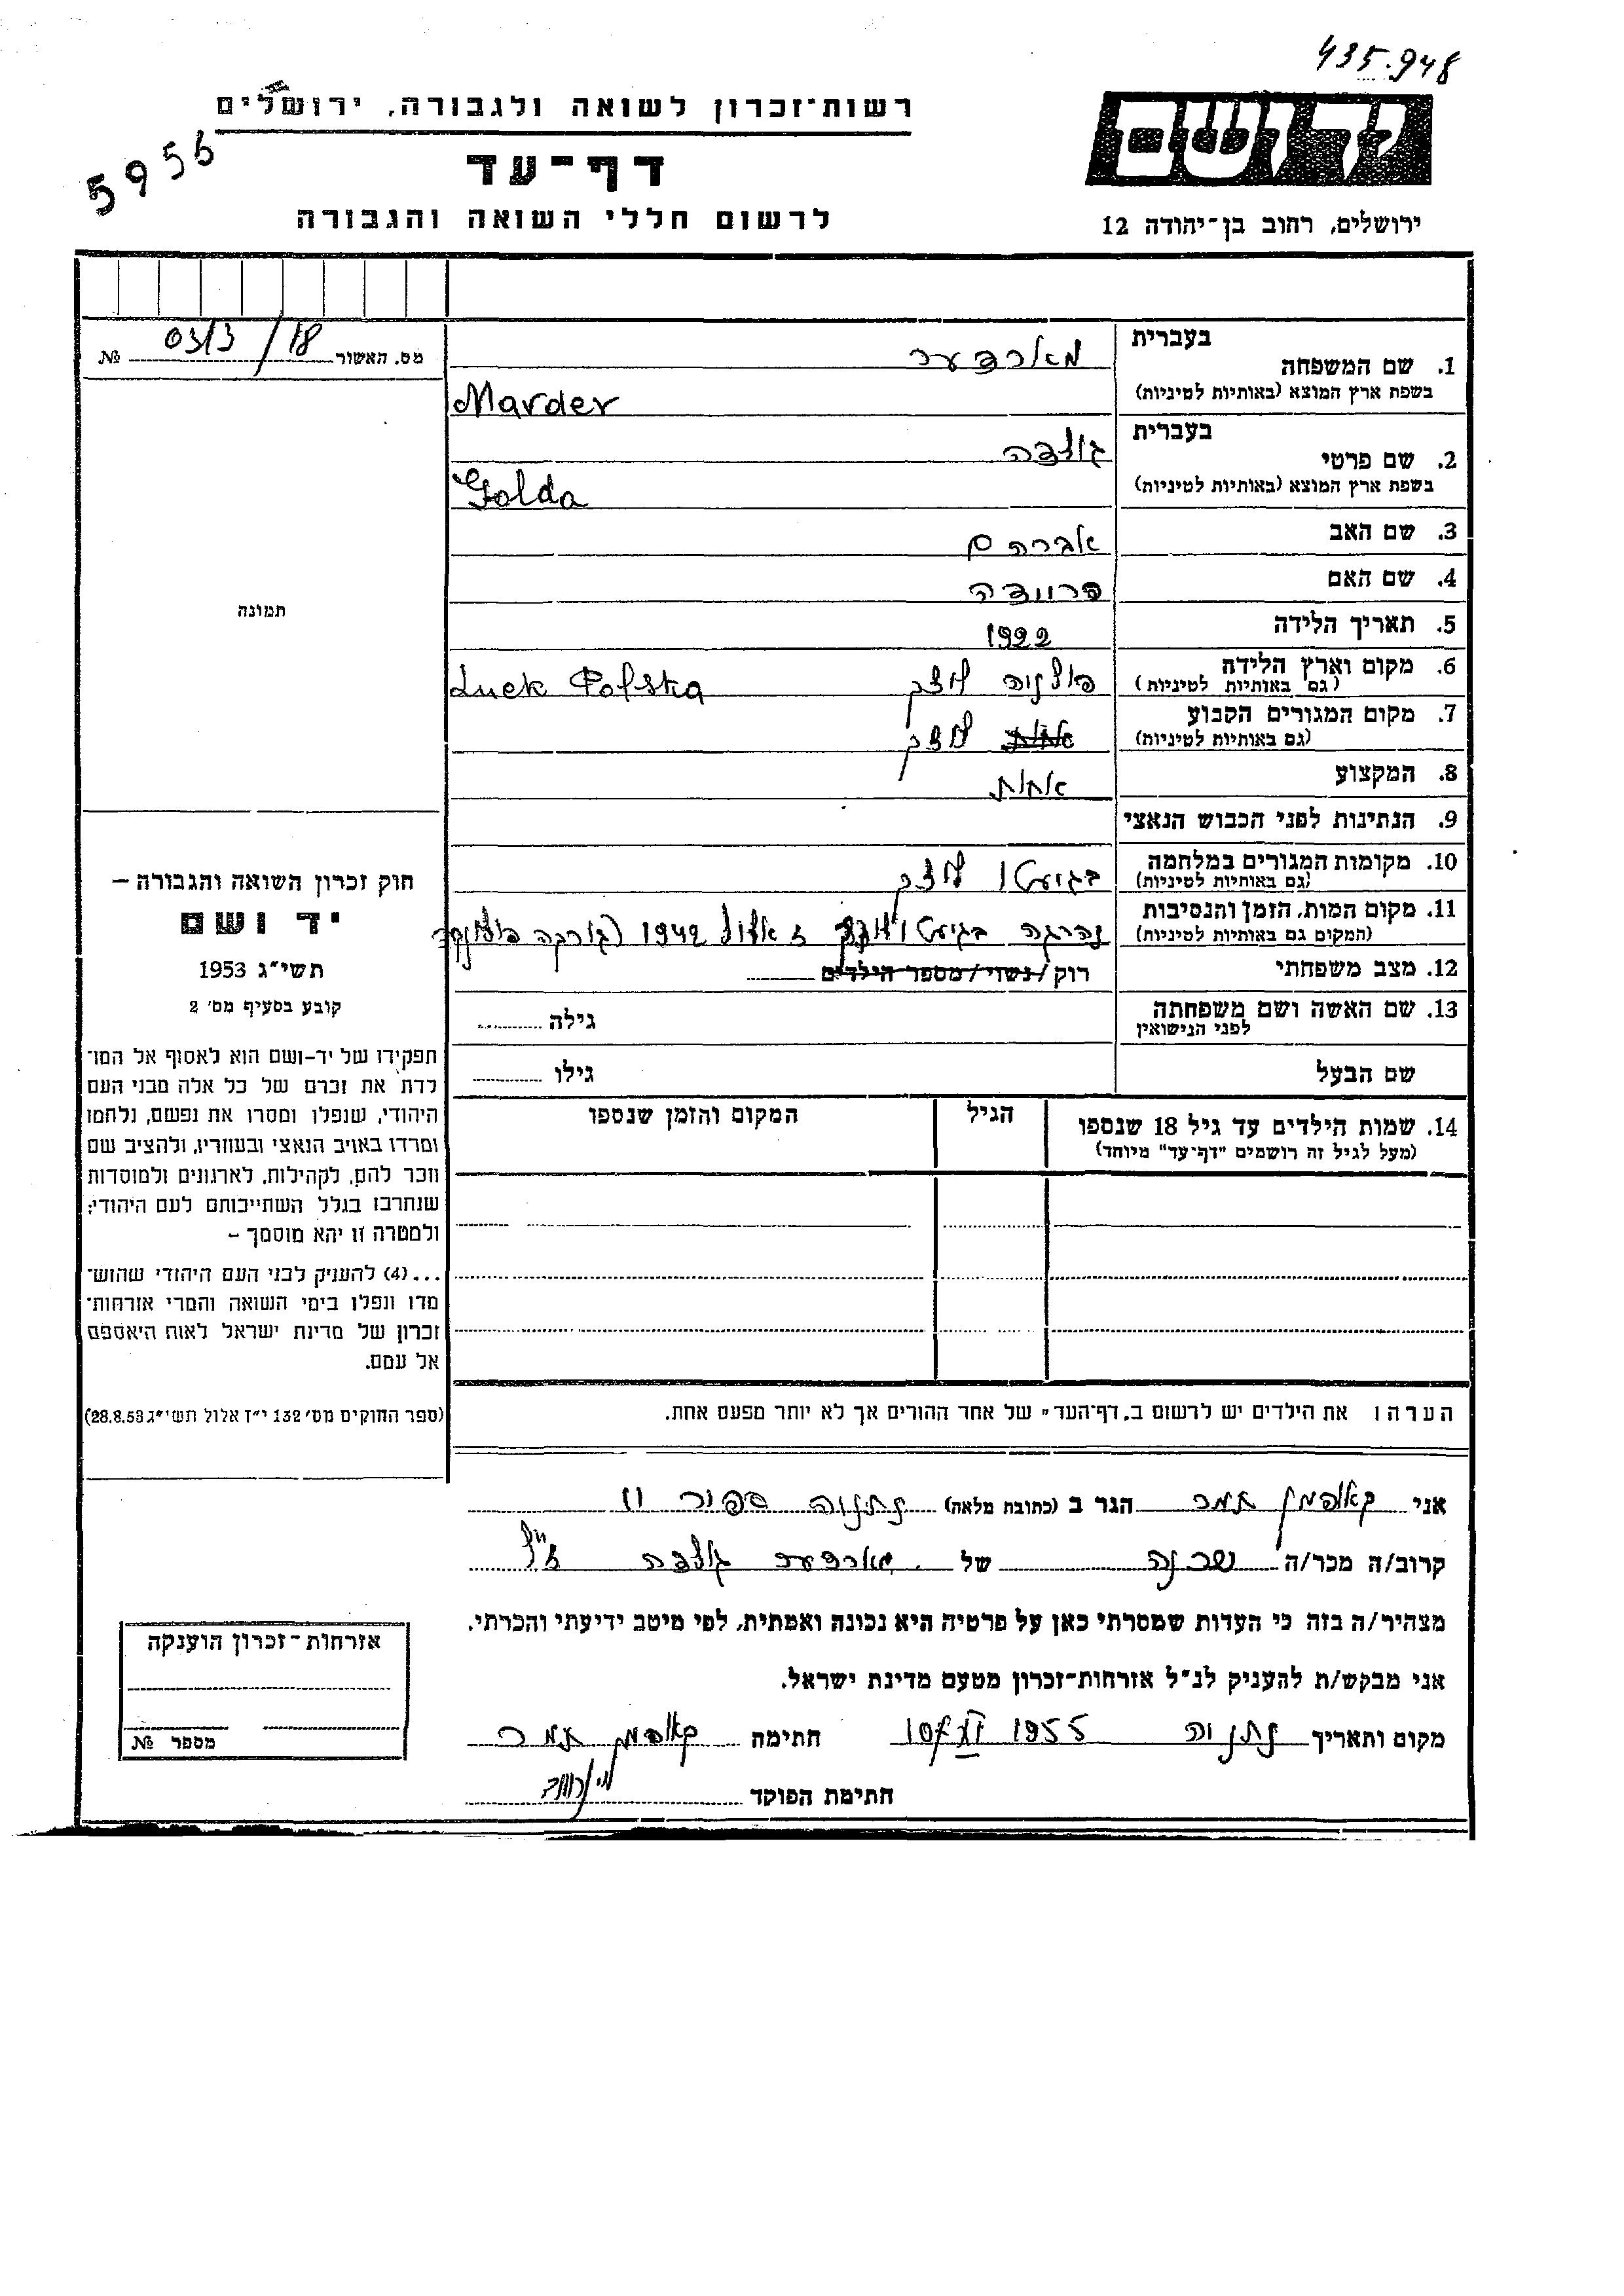 435.948
רשות־זכרון לשואה ולגבורה, ירושלים
5956
דף־עד
לרשום חללי השואה והגבורה
יד ושם
ירושלים, רחוב בן־יהודה 12
מס. האשור 03/3 / 18 №
בעברית
1. שם המשפחה מארדער
בשפת ארץ המוצא (באותיות לטיניות) Marder
בעברית
2. שם פרטי גולדה
בשפת ארץ המוצא (באותיות לטיניות) Golda
3. שם האב אברהם
4. שם האם פרוידה
5. תאריך הלידה 1922
6. מקום וארץ הלידה פולניה לוצק Luck Polska
(גם באותיות לטיניות)
7. מקום המגורים הקבוע לוצק
(גם באותיות לטיניות)
8. המקצוע אחות
9. הנתינות לפני הכבוש הנאצי
10. מקומות המגורים במלחמה בגיעטו לוצק
(גם באותיות לטיניות)
11. מקום המות, הזמן והנסיבות נהרגה בגיעטו לוצק ז אלול 1942
(המקום גם באותיות לטיניות)
12. מצב משפחתי רוק/נשוי/מספר הילדים
13. שם האשה ושם משפחתה גילה
לפני הנישואין
שם הבעל גילו
14. שמות הילדים עד גיל 18 שנספו הגיל המקום והזמן שנספו
(מעל לגיל זה רושמים "דף־עד" מיוחד)
הערה: את הילדים יש לרשום ב"דף־העד" של אחד ההורים אך לא יותר מפעם אחת.
תמונה
חוק זכרון השואה והגבורה –
יד ושם
תשי"ג 1953
קובע בסעיף מס' 2
תפקידו של יד-ושם הוא לאסוף אל המו־
לדת את זכרם של כל אלה מבני העם
היהודי, שנפלו ומסרו את נפשם, נלחמו
ומרדו באויב הנאצי ובעוזריו, ולהציב שם
וזכר להם, לקהילות, לארגונים ולמוסדות
שנחרבו בגלל השתייכותם לעם היהודי;
ולמטרה זו יהא מוסמך –
...(4) להעניק לבני העם היהודי שהוש־
מדו ונפלו בימי השואה והמרי אזרחות־
זכרון של מדינת ישראל לאות היאספם
אל עמם.
(ספר החוקים מס' 132 י"ז אלול תשי"ג 28.8.53)
אני קאופמן תמר הגר ב (כתובת מלאה) נתניה ספיר 11
קרוב/ה מכר/ה שכנה של מארדער גולדה ז"ל
מצהיר/ה בזה כי העדות שמסרתי כאן על פרטיה היא נכונה ואמתית, לפי מיטב ידיעתי והכרתי.
אני מבקש/ת להעניק לנ"ל אזרחות-זכרון מטעם מדינת ישראל.
מקום ותאריך נתניה 1955 חתימה קאופמן תמר
חתימת הפוקד
אזרחות-זכרון הוענקה
מספר №